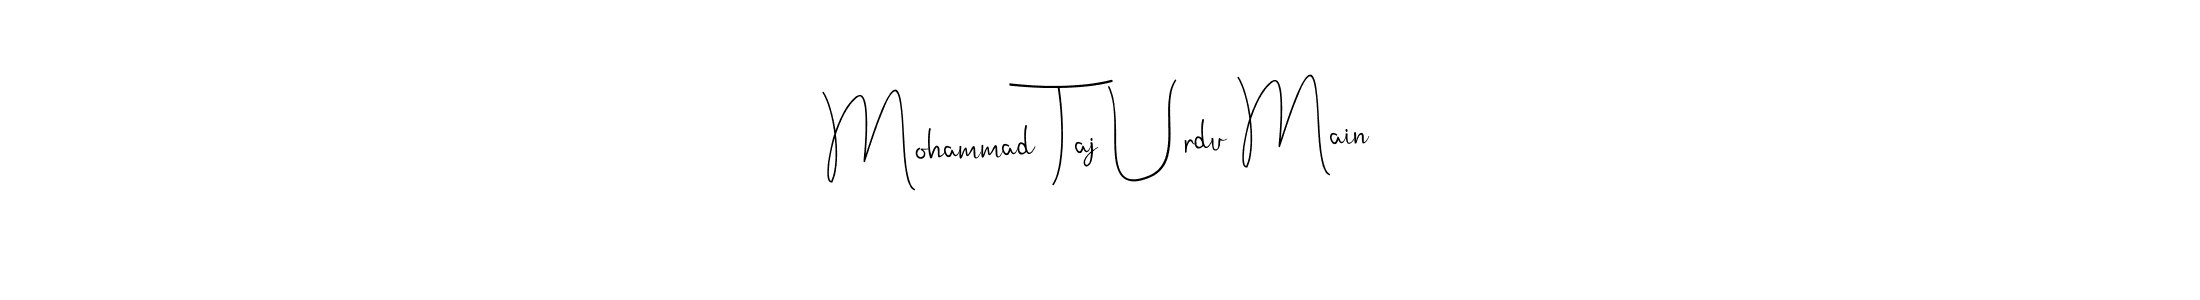 Mohammad Taj Urdu Main